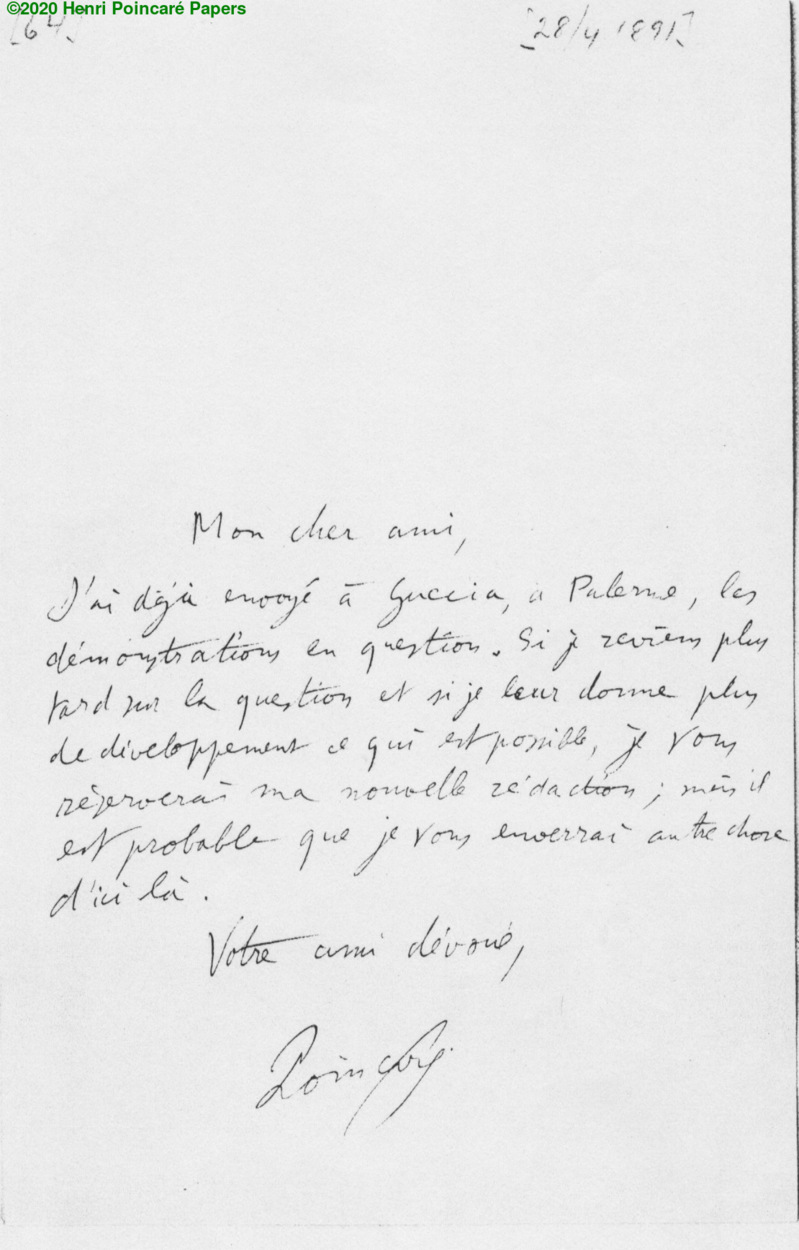 ©2020 Henri Poincaré Papers
[64] [28/4 1891]
Mon cher ami,
J'ai déjà envoyé à Guccia, à Palerme, les
démonstrations en question. Si je reviens plus
tard sur la question et si je leur donne plus
de développement ce qui est possible, je vous
réserverai ma nouvelle rédaction ; mais il
est probable que je vous enverrai autre chose
d'ici là.
Votre ami dévoué,
Poincaré